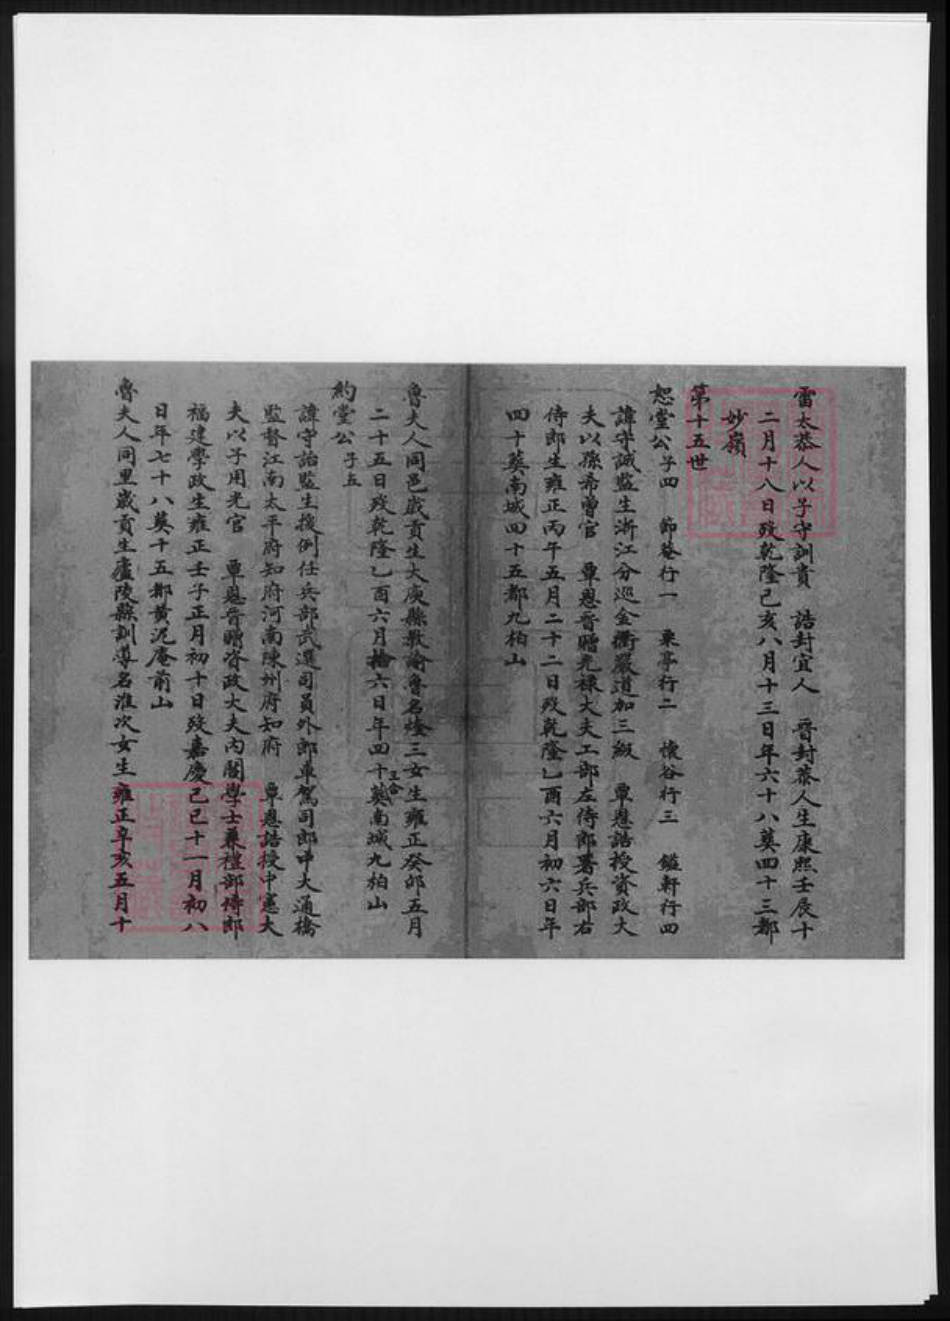 雷太恭人以子守訓貴　誥封宜人　晉封恭人生康熙壬辰十
二月十八日歿乾隆己亥八月十三日年六十八葬四十三都
妙嶺
第十五世
恕堂公子四　節菴行一　東亭行二　懷谷行三　鑑軒行四
諱守誠監生浙江分巡金衢嚴道加三級　覃恩誥授資政大
夫以孫希曾官　覃恩晉贈光祿大夫工部左侍郎署兵部右
侍郎生雍正丙午五月二十二日歿乾隆乙酉六月初六日年
四十葬南城四十五都九柏山
魯夫人同邑歲貢生大庾縣教諭魯名燧三女生雍正癸卯五月
二十五日歿乾隆乙酉六月拾六日年四十三合葬南城九柏山
約堂公子五
諱守詒監生援例任兵部武選司員外郎車駕司郎中大通橋
監督江南太平府知府河南陳州府知府　覃恩誥授中憲大
夫以子用光官　覃恩晉贈資政大夫內閣學士兼禮部侍郎
福建學政生雍正壬子正月初十日歿嘉慶己巳十一月初八
日年七十八葬十五都黃泥庵前山
魯夫人同里歲貢生廬陵縣訓導名淮次女生雍正辛亥五月十